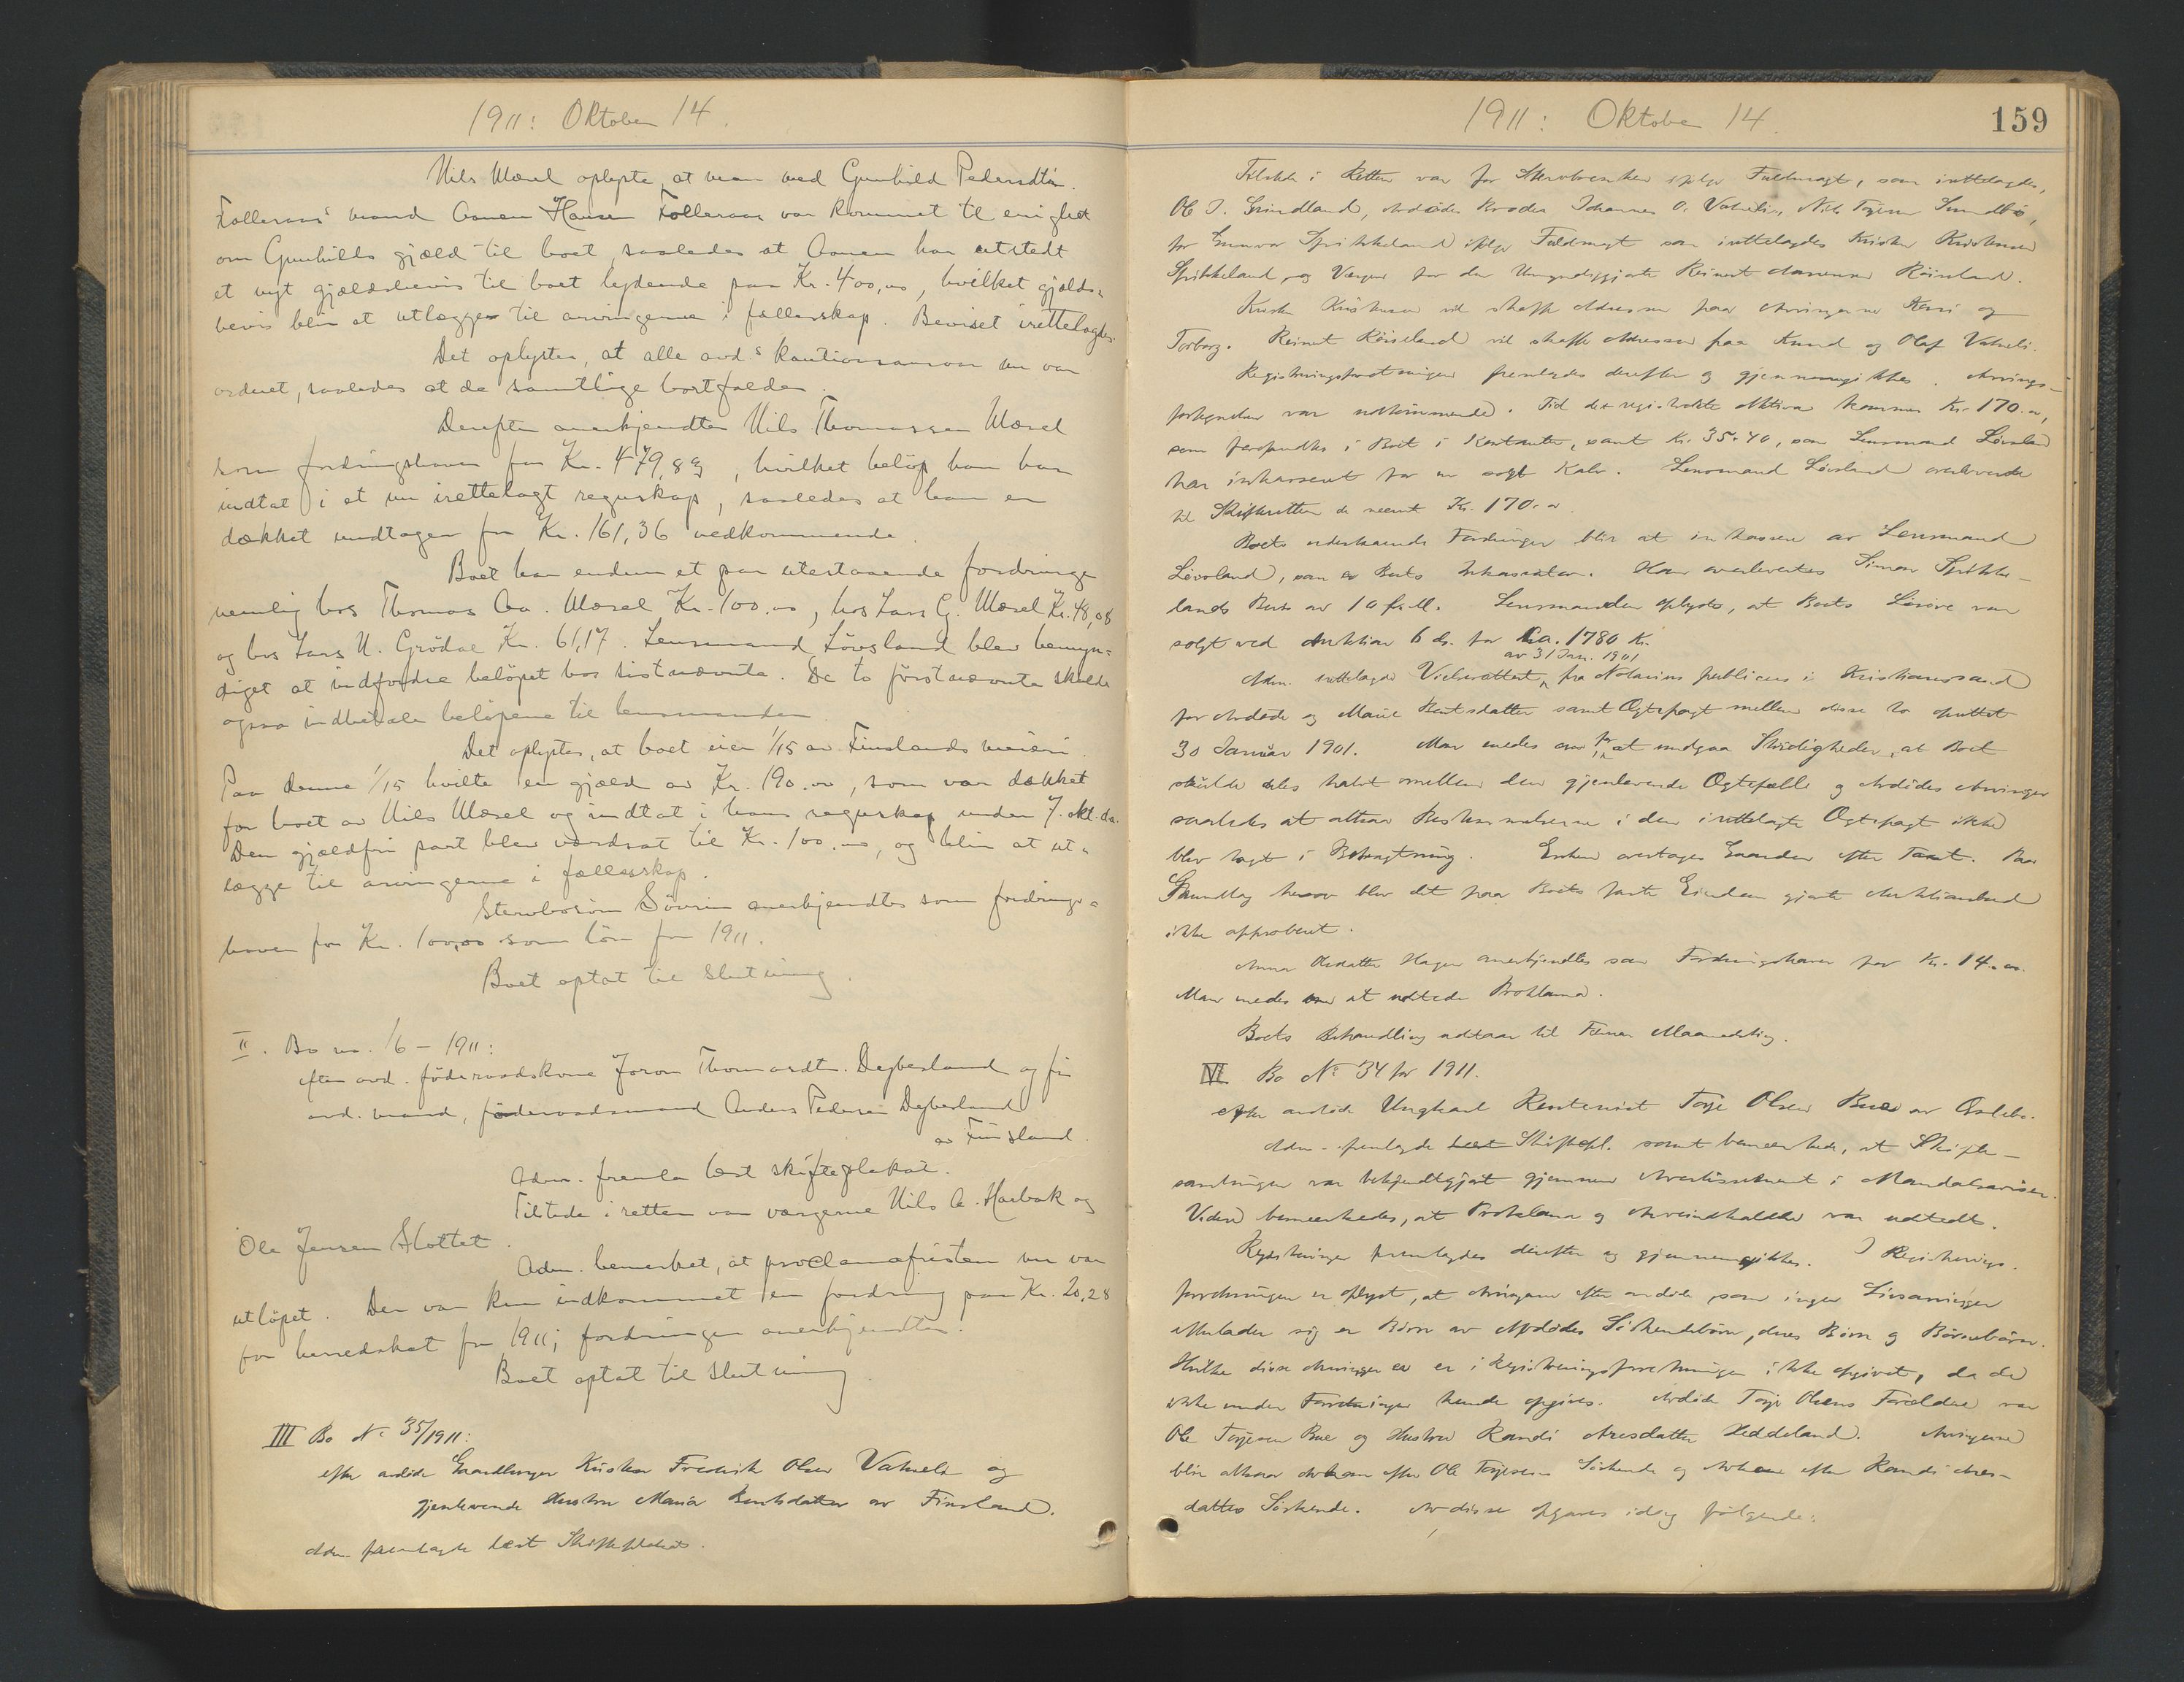 1911: Oktober 14.
Nils Mæsel oplyste, at man med Gunhild Pedersdtr.
Folleraas' mand Aanen Hansen Folleraas var kommet til enighet
om Gunhilds gjæld til boet, saaledes at Aanen har utstedt
et nyt gjældsbevis til boet lydende paa Kr. 400,00, hvilket gjælds-
bevis blir at utlægges til arvingerne i fællesskap. Beviset irettelagdes.
Det oplystes, at alle avd.s kautionsansvar nu var
ordnet, saaledes at de samtlige bortfalder.
Derefter anerkjendtes Nils Thomassen Mæsel
som fordringshaver for Kr. 479,83, hvilket beløp han har
indtat i et nu irettelagt regnskap, saaledes at han er
dækket undtagen for Kr. 161,36 vedkommende.
Boet har endnu et par utestaaende fordringer
nemlig hos Thomas Aa. Mæsel Kr. 100.00, hos Lars G. Mæsel Kr. 48,08
og hos Lars N. Grödae Kr. 61,17. Lensmand Lövsland blev bemyn-
diget at indfordre beløpet hos sistnævnte. De to förstnævnte skulde
ogsaa indbetale beløpene til lensmanden.
Det oplystes, at boet eier 1/15 av Finslands meieri.
Paa denne 1/15 hvilte en gjæld av Kr. 190.00, som var dækket
for boet av Nils Mæsel og indtat i hans regnskap under 7. okt. ds.
Den gjældfri part blev værdsat til Kr. 100.00, og blir at ut-
lægge til arvingerne i fællesskap.
Stervbosön Sövrin anerkjendtes som fordrings-
haver for Kr. 100,00 som lön for 1911.
Boet optat til slutning.
II. Bo no. 16 - 1911:
efter avd. föderaadskone Joron Thomasdtr. Degberland og för
avd. mand, föderaadsmand Anders Pedersen Degberland
av Finsland.
Adm. fremla læst skifteplakat.
Tilstede i retten var værgerne Nils A. Harbak og
Ole Jensen Slottet.
Adm. bemerket, at proclamafristen nu var
utløpet. Der var kun indkommet en fordring paa Kr. 20,28
for herredskat for 1911; fordringen anerkjendtes.
Boet optat til slutning
III Bo No 35/1911:
efter avdöde Gaardbruger Kristen Fredrik Olsen Vatneli og
gjenlevende Hustru Maria Bentsdatter av Finsland.
Adm. fremlagde læst Skifteplakat.
1911: Oktober 14.
159
Tilstede i Retten var for Stervboenken ifølge Fuldmagt, som irettelagdes,
Ole J. Grindland, Avdödes Broder Johannes O. Vatneli, Nils Tojesen Sundbö,
for Gunvor Sprikkeland ifølge Fuldmagt som irettelagdes Kristen Kristensen
Sprikkeland, og Værgen for den Umyndiggjorte Reinert Aanensen Röinsland.
Kristen Kristensen vil skaffe Adresser paa Arvingerne og
Torborg. Reinert Röisland vil skaffe Adresser paa Knud og Olaf Vatneli.
Registreringsforretningen fremlagdes derefter og gjennemgikkes. Arvings-
fortegnelsen var udkommende. Til det registrerte Aktiva kommer Kr. 170.00,
som forefandtes i Boet i Kontanter, samt Kr. 35.40, som Lensmand Lövsland
har inkasseret for en solgt Kalv. Lensmand Lövsland overleverte
til Skifteretten de nævnte Kr. 170.00.
Boets udestaaende Fordringer blir at inkassere av Lensmand
Lövsland, som er Boets Inkassator. Han overlevertes Simon Sprikke-
lands Bevis av 10 ds. Lensmanden oplyste, at Boets Lösöre var
solgt ved Auktion 6 ds. for Ca. 1780 Kr.
av 31 Jan. 1901
Adm. irettelagde Vielsesattest fra Notarius publicus i Kristianssand
for Avdöde og Marie Bentsdatter samt Ægtepagt mellem disse to oprettet
30 Januar 1901. Man enedes om for at undgaa Stridigheder, at Boet
skulde deles halvt mellem den gjenlevende Ægtefælle og Avdödes Arvinger
saaledes at altsaa Bestemmelserne i den irettelagte Ægtepagt ikke
blev tagt i Betragtning. Enken overtager Gaarden efter Taxt. Paa
Grundlag herav blev det paa Boets faste Eiendom gjorte Auktionsbud
ikke approbert.
Anna Olsdatter Hagen anerkjendtes som Fordringshaver for Kr. 14.00.
Man enedes om at udstede Proklama.
Boets Behandling udstaar til Maanedsting.
IV Bo No 34 for 1911.
efter avdöde Ungkarl Rentenist Torje Olsen Bue av Öislebö.
Adm. fremlagde læst Skiftepl. samt bemærkede, at Skifte-
samlingen var bekjendtgjort gjennem Avertissement i Mandalsavisen.
Videre bemærkedes, at Proklama og Arveindkaldelse var udstedt.
Registreringen fremlagdes derefter og gjennemgikkes. I Registrerings-
forretningen er oplyst, at Arvingerne efter avdöde som ingen Livsarvinger
efterlader sig er Börn av Avdödes Söskendebörn, deres Börn og Börnebörn.
Hvilke disse Arvinger er er i Registreringsforretningen ikke opgivet, da de
ikke under Forretningen kunde opgives. Avdöde Torje Olsens Forældre var
Ole Torjesen Bue og Hustru Randi Aresdatter Heddeland. Arvingerne
blir altsaa Avkom efter Ole Torjesens Söskende og Avkom efter Randi Ares-
datters Söskende. Av disse opgaves idag fölgende: